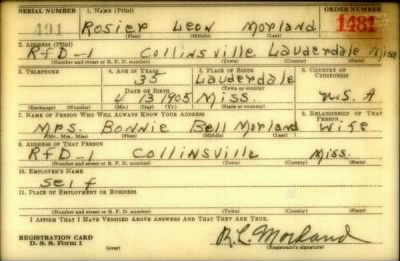 SERIAL NUMBER 1. NAME (Print) ORDER NUMBER
491 Rosier Leon Morland 1481
(First) (Middle) (Last)
2. ADDRESS (Print)
RFD-1 Collinsville Lauderdale Miss
(Number and street or R. F. D. number) (Town) (County) (State)
3. TELEPHONE 4. AGE IN YEARS 5. PLACE OF BIRTH 6. COUNTRY OF CITIZENSHIP
35 Lauderdale
DATE OF BIRTH (Town or county)
4 13 1905 Miss. U.S.A
(Exchange) (Number) (Mo.) (Day) (Yr.) (State or country)
7. NAME OF PERSON WHO WILL ALWAYS KNOW YOUR ADDRESS 8. RELATIONSHIP OF THAT PERSON
Mrs. Bonnie Bell Morland Wife
(Mr., Mrs., Miss) (First) (Middle) (Last)
9. ADDRESS OF THAT PERSON
RFD-1 Collinsville Miss.
(Number and street or R. F. D. number) (Town) (County) (State)
10. EMPLOYER'S NAME
Self
11. PLACE OF EMPLOYMENT OR BUSINESS
(Number and street or R. F. D. number) (Town) (County) (State)
I AFFIRM THAT I HAVE VERIFIED ABOVE ANSWERS AND THAT THEY ARE TRUE.
REGISTRATION CARD
D. S. S. Form 1 (over) R.L. Morland
(Registrant's signature)